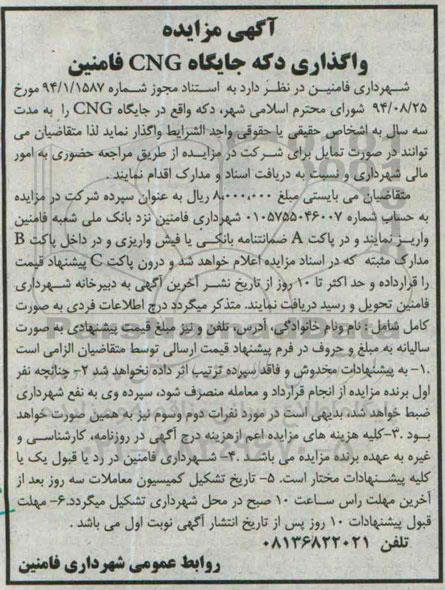 آگهی مزایده
واگذاری دکه جایگاه CNG فامنین
شهرداری فامنین در نظر دارد به استناد مجوز شماره ۹۴/۱/۱۵۸۷ مورخ
۹۴/۰۸/۲۵ شورای محترم اسلامی شهر، دکه واقع در جایگاه CNG را به مدت
سه سال به اشخاص حقیقی یا حقوقی واجد الشرایط واگذار نماید لذا متقاضیان می
توانند در صورت تمایل برای شرکت در مزایده از طریق مراجعه حضوری به امور
مالی شهرداری و نسبت به دریافت اسناد و مدارک اقدام نمایند.
متقاضیان می بایستی مبلغ ۸,۰۰۰,۰۰۰ ریال به عنوان سپرده شرکت در مزایده
به حساب شماره ۰۱۰۵۷۵۵۰۴۶۰۰۷ شهرداری فامنین نزد بانک ملی شعبه فامنین
واریز نمایند و در پاکت A ضمانتنامه بانکی یا فیش واریزی و در داخل پاکت B
مدارک مثبته که در اسناد مزایده اعلام خواهد شد و درون پاکت C پیشنهاد قیمت
را قرارداده و حد اکثر تا ۱۰ روز از تاریخ نشر آخرین آگهی به دبیرخانه شهرداری
فامنین تحویل و رسید دریافت نمایند. متذکر میگردد درج اطلاعات فردی به صورت
کامل شامل : نام ونام خانوادگی، آدرس، تلفن و نیز مبلغ قیمت پیشنهادی به صورت
سالیانه به مبلغ و حروف در فرم پیشنهاد قیمت ارسالی توسط متقاضیان الزامی است
.۱- به پیشنهادات مخدوش و فاقد سپرده ترتیب اثر داده نخواهد شد ۲- چنانچه نفر
اول برنده مزایده از انجام قرارداد و معامله منصرف شود، سپرده وی به نفع شهرداری
ضبط خواهد شد، بدیهی است در مورد نفرات دوم وسوم نیز به همین صورت خواهد
بود .۳-کلیه هزینه های مزایده اعم ازهزینه درج آگهی در روزنامه، کارشناسی و
غیره به عهده برنده مزایده می باشد .۴- شهرداری فامنین در رد یا قبول یک یا
کلیه پیشنهادات مختار است. ۵- تاریخ تشکیل کمیسیون معاملات سه روز بعد از
آخرین مهلت راس ساعت ۱۰ صبح در محل شهرداری تشکیل میگردد.۶- مهلت
قبول پیشنهادات ۱۰ روز پس از تاریخ انتشار آگهی نوبت اول می باشد .
تلفن ۰۸۱۳۶۸۲۲۰۲۱
روابط عمومی شهرداری فامنین